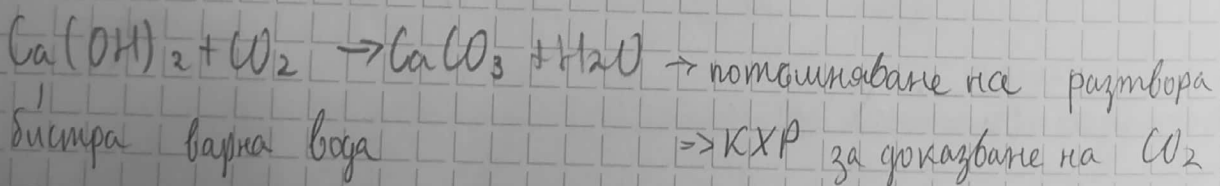 Ca(OH)2 + CO2 → CaCO3 + H2O → потъмняване на разтвора
бистра варна вода => КХР за доказване на CO2